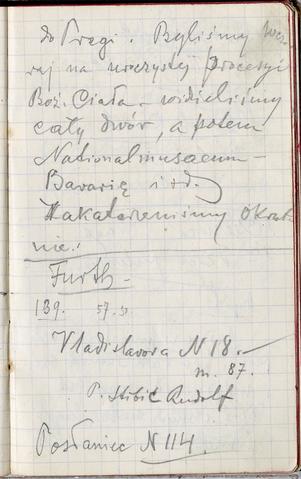 do Pragi. Byliśmy wczo-
raj na uroczystej procesyi
Boż. Ciała. widzieliśmy
cały dwór, a potem
Nationalmusaeum –
Bavarię i t d.
zakatarzeniśmy okrut
nie.!
Furth –
139. 57.
Vladislavova N 18. –
m. 87.
P. Stibic Rudolf
Posłaniec N 114.